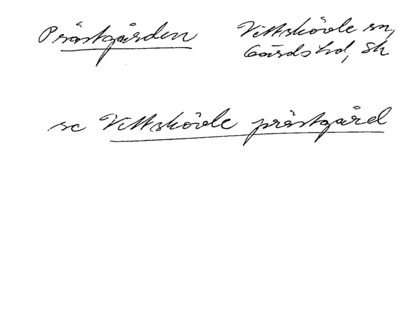 Prästgården Vittskövle sn,
Gärds hd, Sk
se Vittskövle prästgård